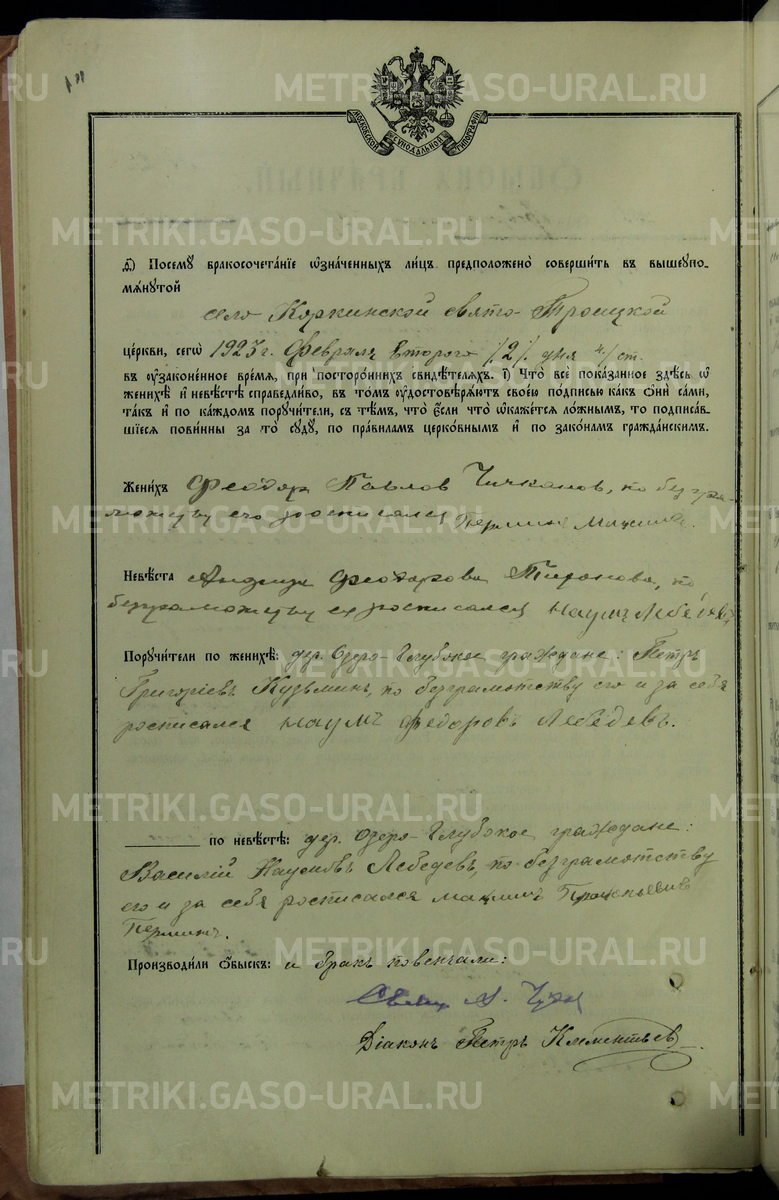 МОСКОВСКОЙ СѴНОДАЛЬНОЙ ТИПОГРАФІИ
ѕ҃) Посемꙋ бракосочета́нїе ѡзна́ченныхъ ли́цъ предположено̀ соверши́ть въ вышеупо-
мѧ́нутой
село Коркинской свято-Троицкой
це́ркви, сегѡ̀ 1923 г. Февраля второго /2/. дня н/ст.
въ ᲂу҆зако́ненное вре́мѧ, при посторо́ннихъ свидѣ́телѧхъ. з҃) Что̀ всѐ пока́занное здѣ́сь ѡ
женихѣ̀ и҆ невѣ́стѣ справедли́во, въ то́мъ ᲂу҆достовѣрѧ́ютъ свое́ю по́дписью ка́къ ѻ҆нѝ са́ми,
та́къ и҆ по ка́ждомъ поручи́тели, съ тѣ́мъ, что̀ є҆́сли что̀ ѡ҆ка́жетсѧ ло́жнымъ, то подписа́в-
шїесѧ пови́нны за то̀ сꙋдꙋ̀, по пра́виламъ церко́внымъ и҆ по зако́намъ гражда́нскимъ.
Жени́хъ Феодор Павлов Чичканов, по безгра-
мотству его росписался Пермин Максим.
Невѣ́ста Федорова по
безграмотству ее росписался Наумъ Лебедевъ
Поручи́тели по женихѣ̀: дер. Озеро-Глубокое граждане: Петръ
Григорiевъ Кузьминъ, по безграмотству его и за себя
росписался Наумъ Федоровъ Лебедевъ.
по невѣ́стѣ: дер. Озеро-Глубокое граждане:
Василiй Наумовъ Лебедевъ, по безграмотству
его и за себя росписался Максимъ
Перминъ.
Производи́ли ѻ҆́быскъ: и бракъ повенчали:
Свящ А.
Дiаконъ Петръ Клементьев.
METRIKI.GASO-URAL.RU